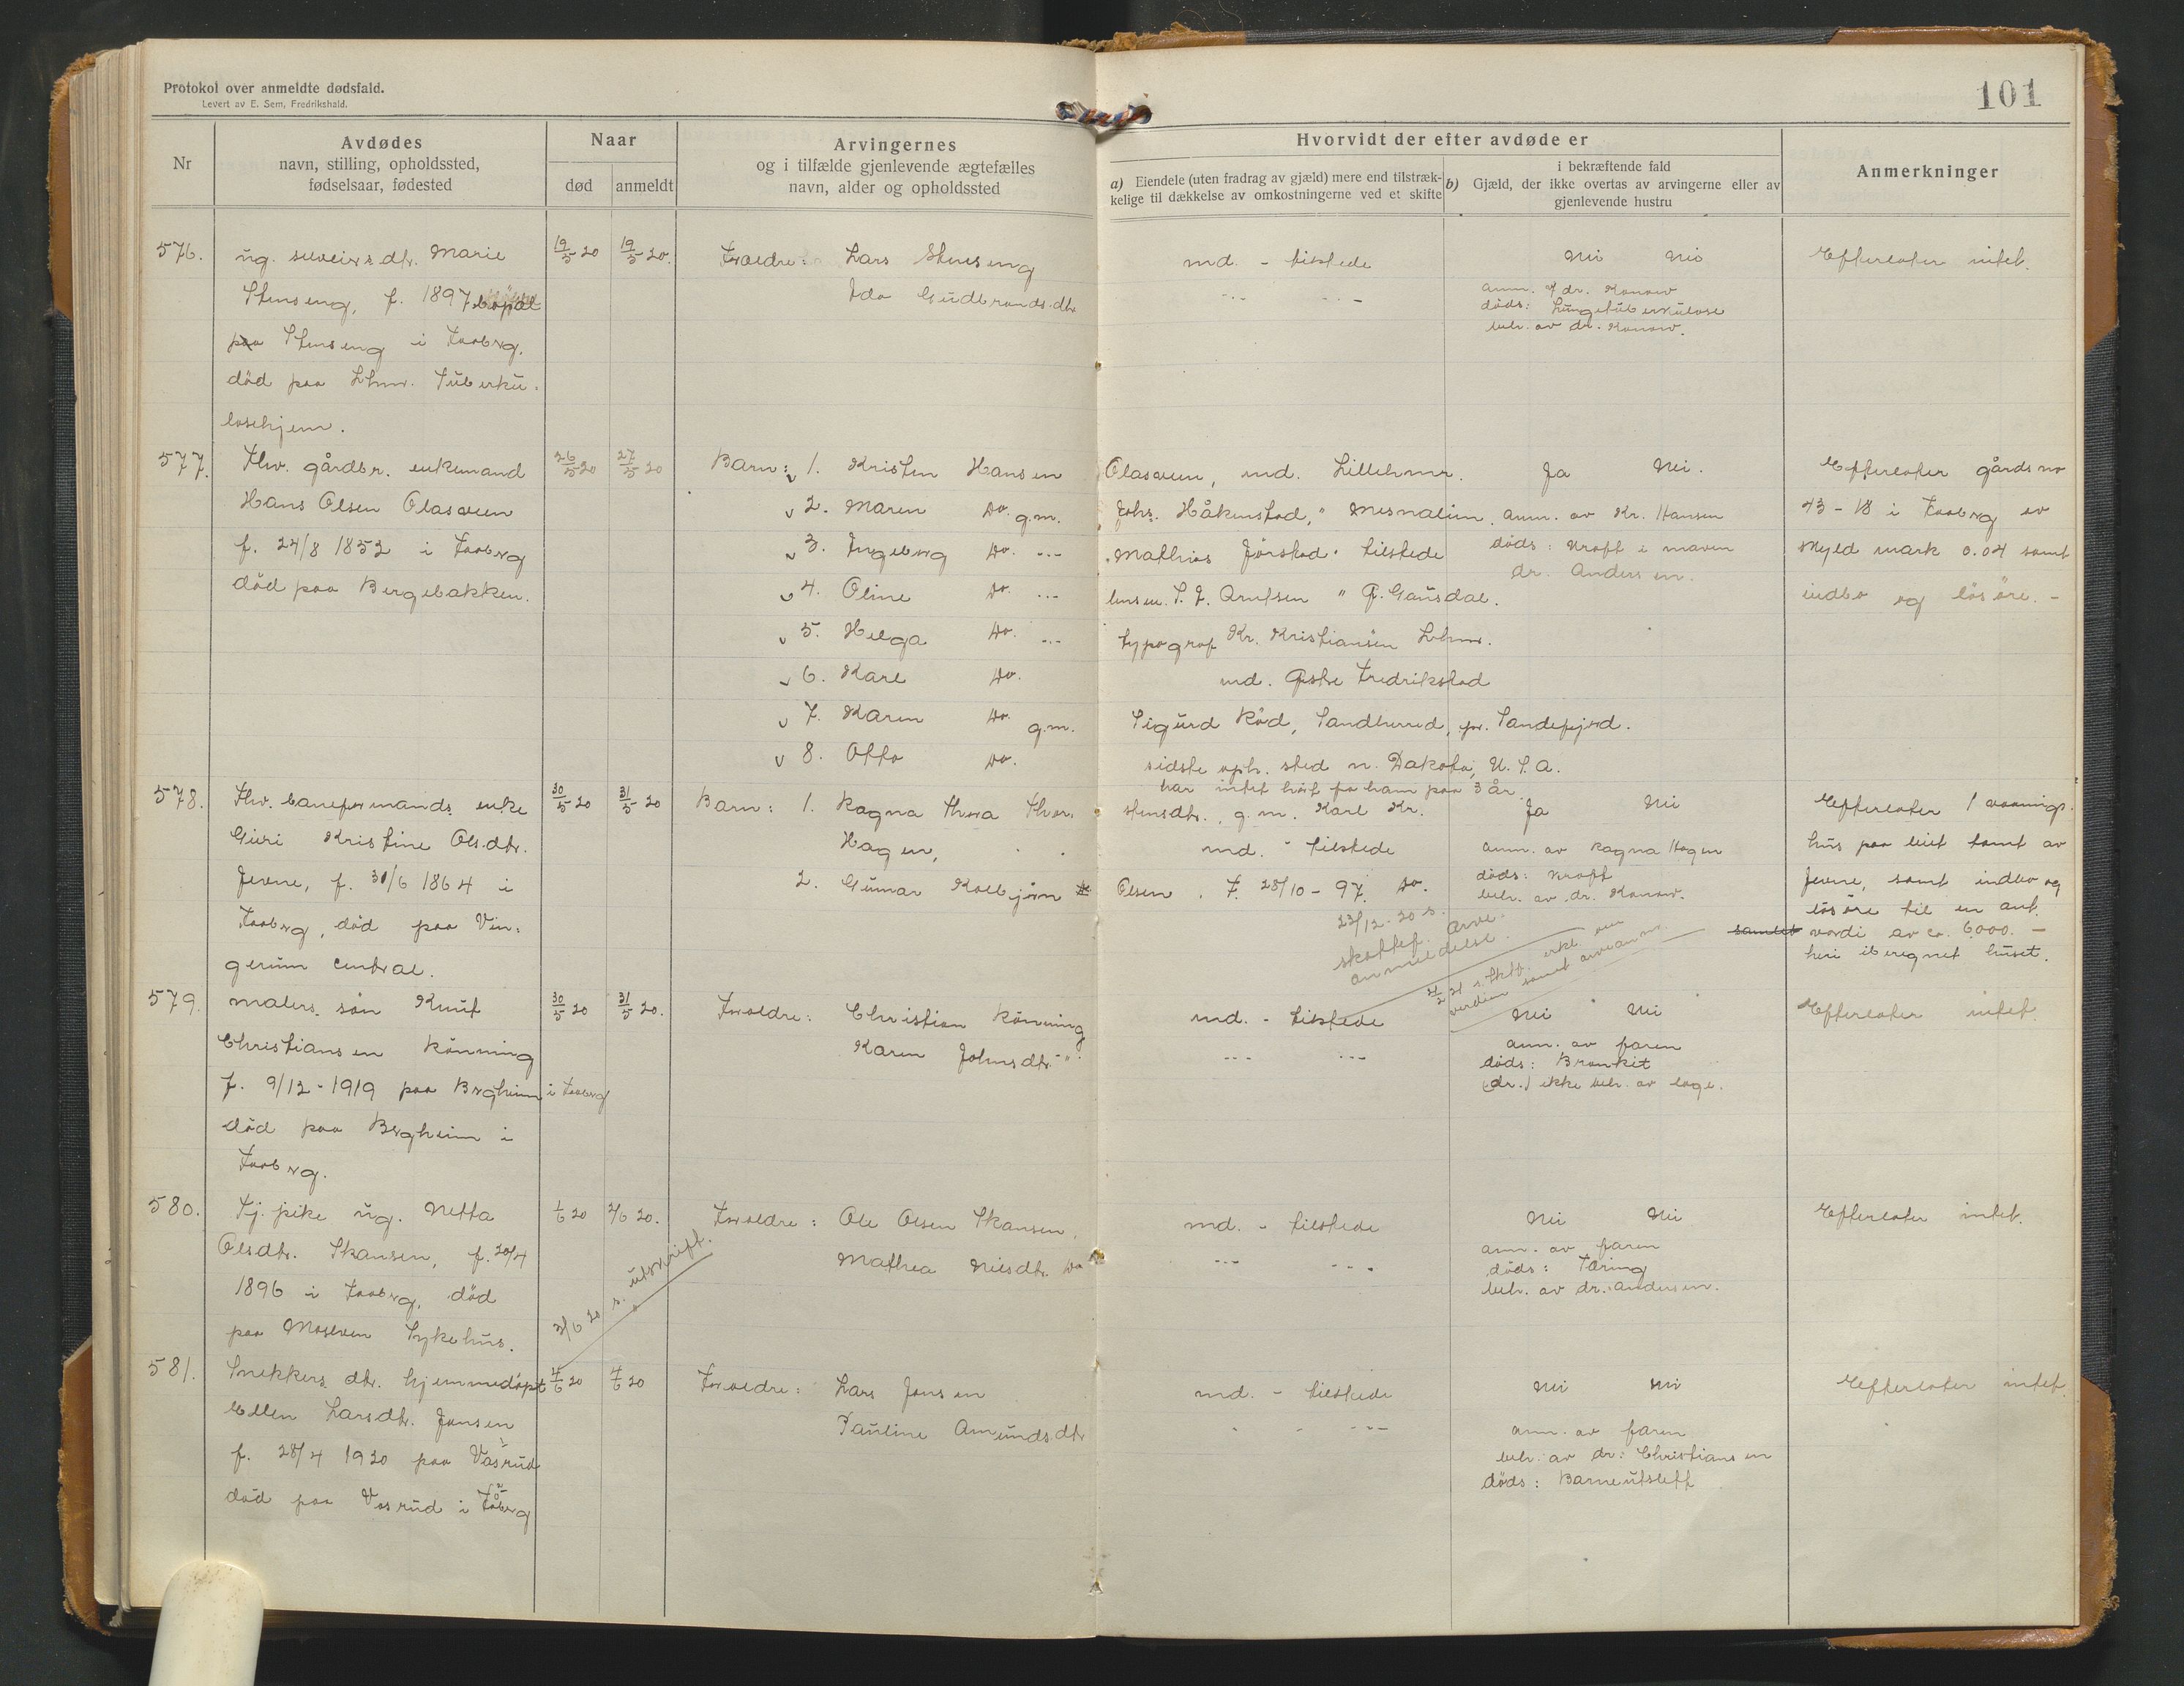 Protokol over anmeldte dødsfald.
Levert av E. Sem, Fredrikshald.
101
Nr
Avdødes
navn, stilling, opholdssted,
fødselsaar, fødested
Naar
død
anmeldt
Arvingernes
og i tilfælde gjenlevende ægtefælles
navn, alder og opholdssted
Hvorvidt der efter avdøde er
a) Eiendele (uten fradrag av gjæld) mere end tilstræk-
kelige til dækkelse av omkostningerne ved et skifte
i bekræftende fald
b) Gjæld, der ikke overtas av arvingerne eller av
gjenlevende hustru
Anmerkninger
576.
ug. selveiers dtr. Marie
Stenseng, f. 1897
paa Stenseng i Faaberg.
död paa Lhmr. Tuberku-
losehjem.
19/5 20
19/5 20.
Foreldre: Lars Stenseng
Ida Gudbrands.dtr
md. - tilstede
--- ---
Nei Nei
anm. af dr. Konow
döds: Lungetuberkulose
beh. av dr. Konow.
Efterlater intet.
577.
Fhv. gårdbr. enkemand
Hans Olsen Olasveen
f. 24/8 1852 i Faaberg
död paa Bergebakken.
26/5 20
27/5 20
Barn: 1. Kristen Hansen Olasveen, md. Lillehmr.
2. Maren do. g.m. Johs. Håkenstad, " Mesnalien.
3. Ingeborg do. --- Mathias Jörstad " tilstede
4. Oline do. --- lensm. P. J. Arntsen " Ö. Gausdal.
5. Helga do. --- typograf Kr. Kristiansen Lhmr.
6. Karl do. md. Östre Fredrikstad
7. Karen do. g.m. Sigurd Röd, Sandherred, pr. Sandefjord.
8. Otto do. sidste oph. sted n. Dakota, U.S.A.
har intet hört fra ham paa 3 år.
Ja Nei.
anm. av Kr. Hansen
döds: Kræft i maven
dr. Andersen.
Efterlater gårds no
43-18 i Faaberg av
skyld mark 0.04 samt
indbo og lösöre. -
578.
Fhv. baneformands enke
Guri Kristine Ols.dtr.
Jevne, f. 30/6 1864 i
Faaberg, död paa Vin-
gerum Central.
30/5 20
31/5 20
Barn: 1. Ragna Thora Thor- stensdtr., g.m. Karl Kr.
Hagen, md. - tilstede
2. Gunnar Kolbjörn Olsen. F. 28/10-97. do.
23/12-20 s.
skattef. arve-
anmeldelse.
4/2 21 s. skb. erkl. om
verdien samt arveanm.
Ja Nei
anm. av Ragna Hagen
döds: Kræft
beh. av dr. Konow.
Efterlater 1 vaanings-
hus paa leiet tomt av
Jevne, samt indbo og
lösöre til en ant.
samlet værdi av ca. 6000. -
heri iberegnet huset.
579.
Malers sön Knut
Christiansen Rönning
f. 9/12-1919 paa Bergheim i Faaberg
död paa Bergheim i
Faaberg.
30/5 20
31/5 20.
Foreldre: Christian Rönning
Karen Johnsdtr. "
md. - tilstede
--- ---
Nei Nei
anm. av faren
döds: Bronkit
(dr.) ikke beh. av læge.
Efterlater intet
580.
Tj. pike ug. Netta
Olsdtr. Skansen, f. 20/4
1896 i Faaberg, död
paa Moseven Sykehus.
1/6 20
2/6 20.
3/6 20 s. utskrift.
Foreldre: Ole Olsen Skansen,
Mathea Nilsdtr. do
md. - tilstede
--- ---
Nei Nei
anm. av faren
döds: Tæring
beh. av dr. Andersen.
Efterlater intet.
581.
Snekkers dtr. hjemmedöpt
Ellen Larsdtr. Jonsen
f. 28/4 1920 paa Vasrud
död paa Vasrud i Faaberg
4/6 20
7/6 20
Foreldre: Lars Jonsen
Pauline Amunds.dtr
md. - tilstede
- ---
Nei Nei
anm. av faren
beh. av dr: Christiansen
döds: Barneutslett
Efterlater intet.